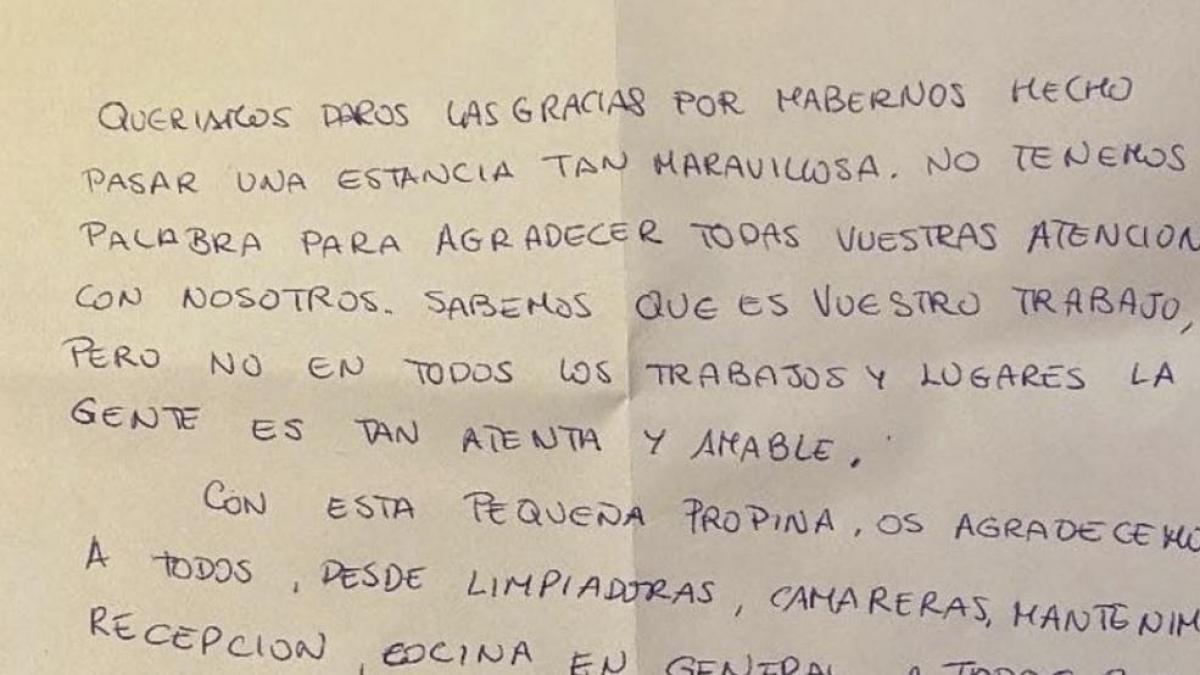 QUERIAMOS DAROS LAS GRACIAS POR HABERNOS HECHO
PASAR UNA ESTANCIA TAN MARAVILLOSA. NO TENEMOS
PALABRA PARA AGRADECER TODAS VUESTRAS ATENCION
CON NOSOTROS. SABEMOS QUE ES VUESTRO TRABAJO,
PERO NO EN TODOS LOS TRABAJOS Y LUGARES LA
GENTE ES TAN ATENTA Y AMABLE.
CON ESTA PEQUEÑA PROPINA, OS AGRADECEMO
A TODOS, DESDE LIMPIADORAS, CAMARERAS, MANTENIM
RECEPCION, COCINA EN GENERAL